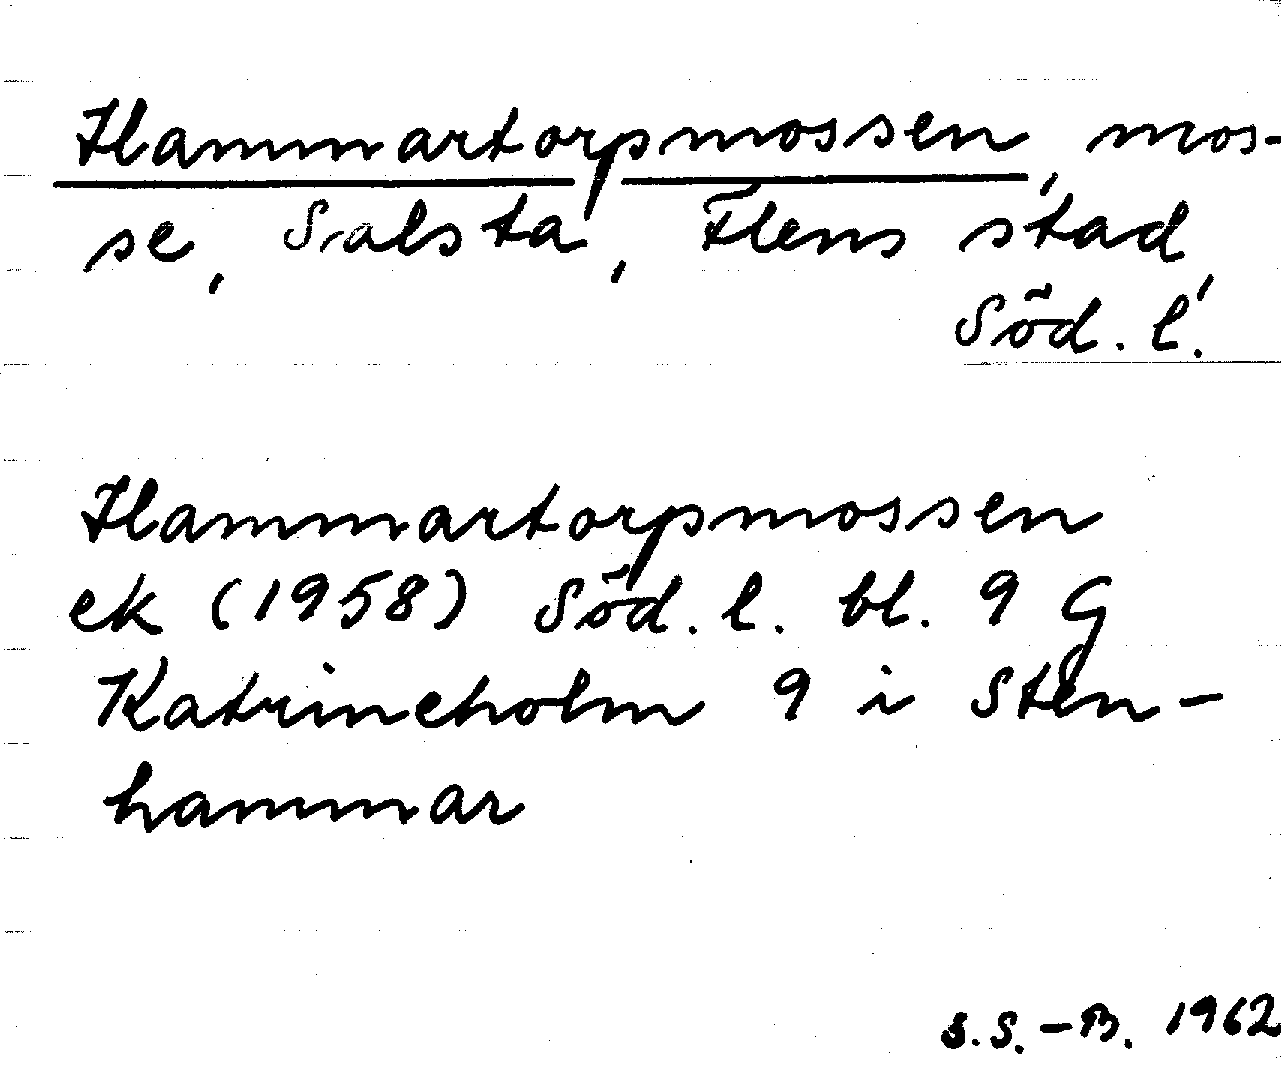 Hammartorpmossen, mos-
se, Salsta, Flens stad,
Söd. l.
Hammartorpmossen
ek (1958) Söd. l. bl. 9 G
Katrineholm 9 i Sten-
hammar
S.S.-B. 1962